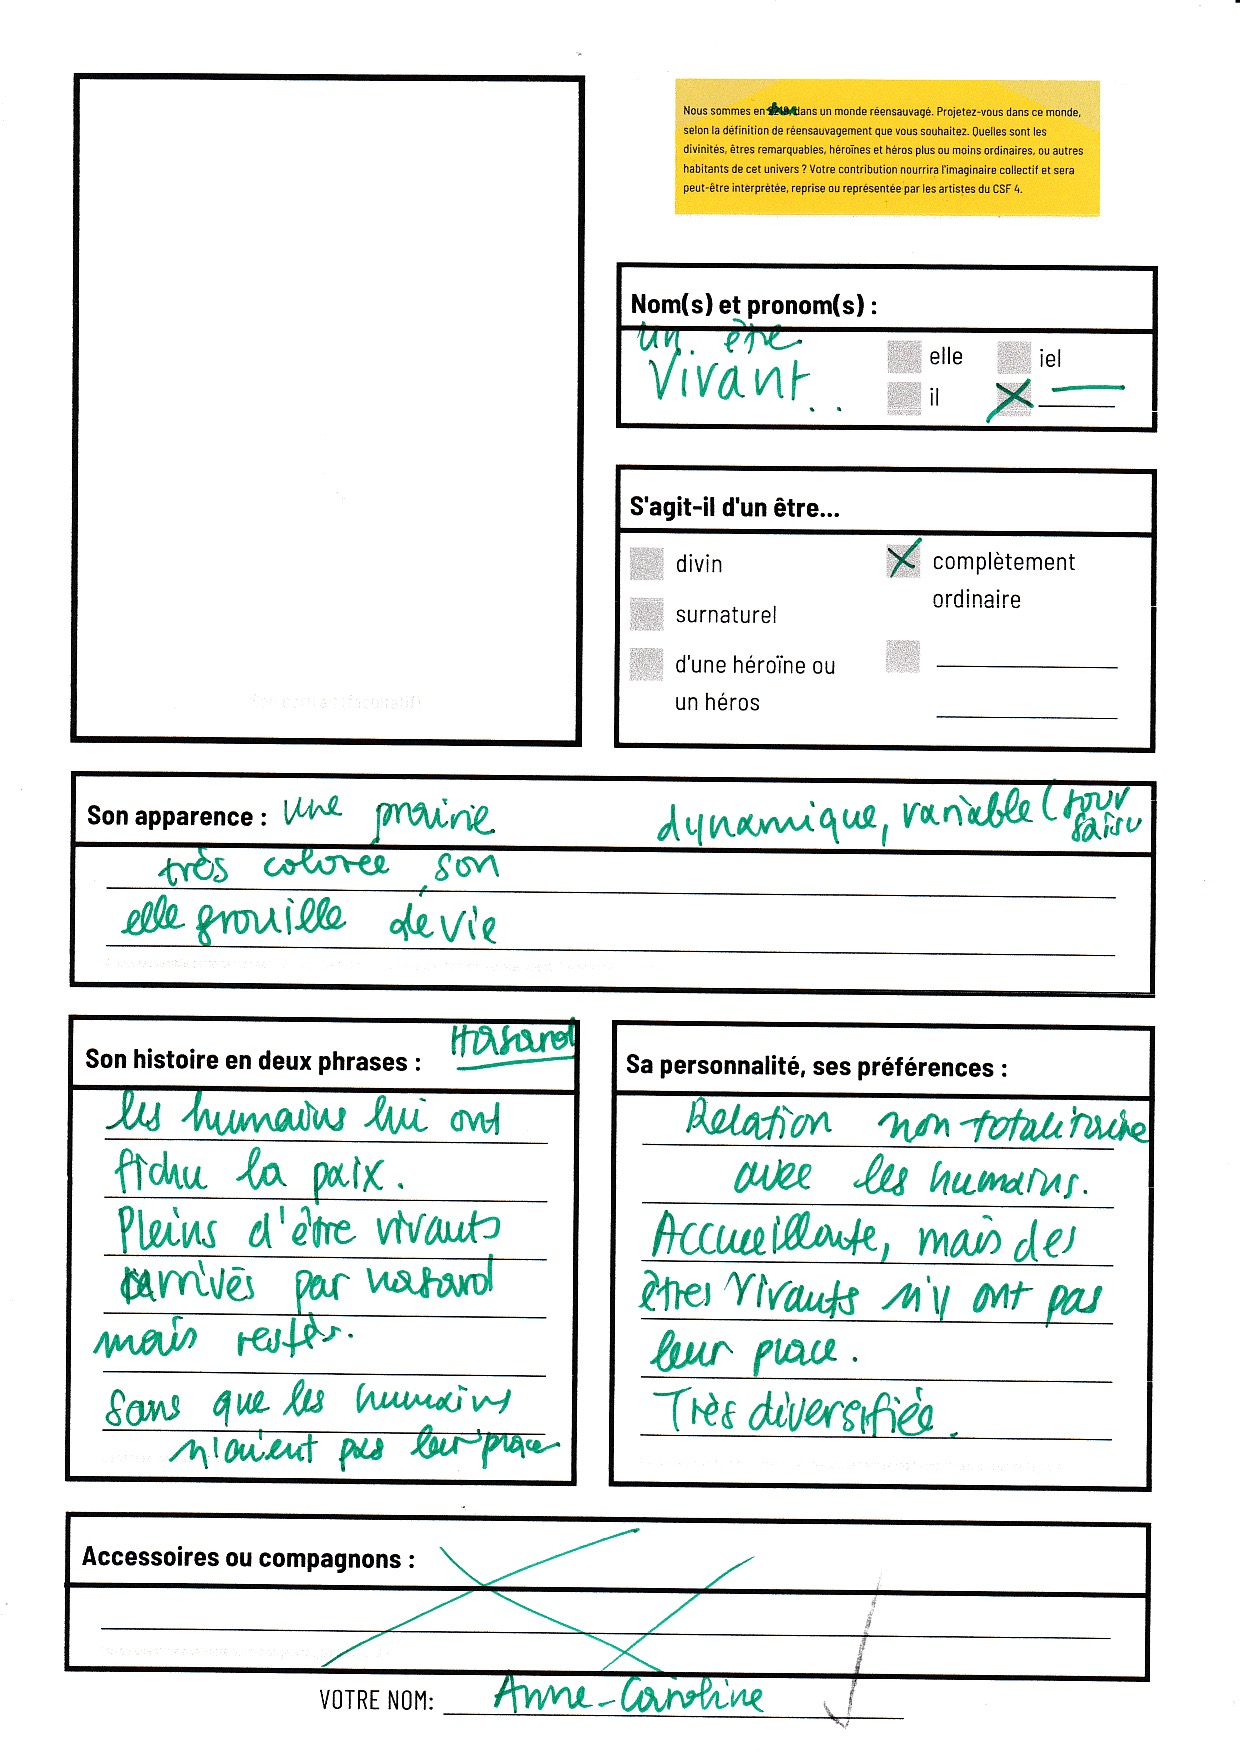 Nous sommes en dans un monde réensauvagé. Projetez-vous dans ce monde,
selon la définition de réensauvagement que vous souhaitez. Quelles sont les
divinités, êtres remarquables, héroïnes et héros plus ou moins ordinaires, ou autres
habitants de cet univers ? Votre contribution nourrira l'imaginaire collectif et sera
peut-être interprétée, reprise ou représentée par les artistes du CSF 4.
Nom(s) et pronom(s) :
un être
Vivant..
elle
iel
il
S'agit-il d'un être...
divin
complètement
ordinaire
surnaturel
d'une héroïne ou
un héros
Son portrait (facultatif)
Son apparence : une prairie
dynamique, variable (
très colorée, son
elle grouille de vie
Son histoire en deux phrases :
Hasard
les humains lui ont
fichu la paix.
Pleins d'être vivants
arrivés par hasard
mais restés.
Sans que les humains
n'aient pas leur place
Sa personnalité, ses préférences :
Relation non-totalitaire
avec les humains.
Accueillante, mais des
êtres vivants n'y ont pas
leur place.
Très diversifiée.
Accessoires ou compagnons :
VOTRE NOM: Anne-Caroline